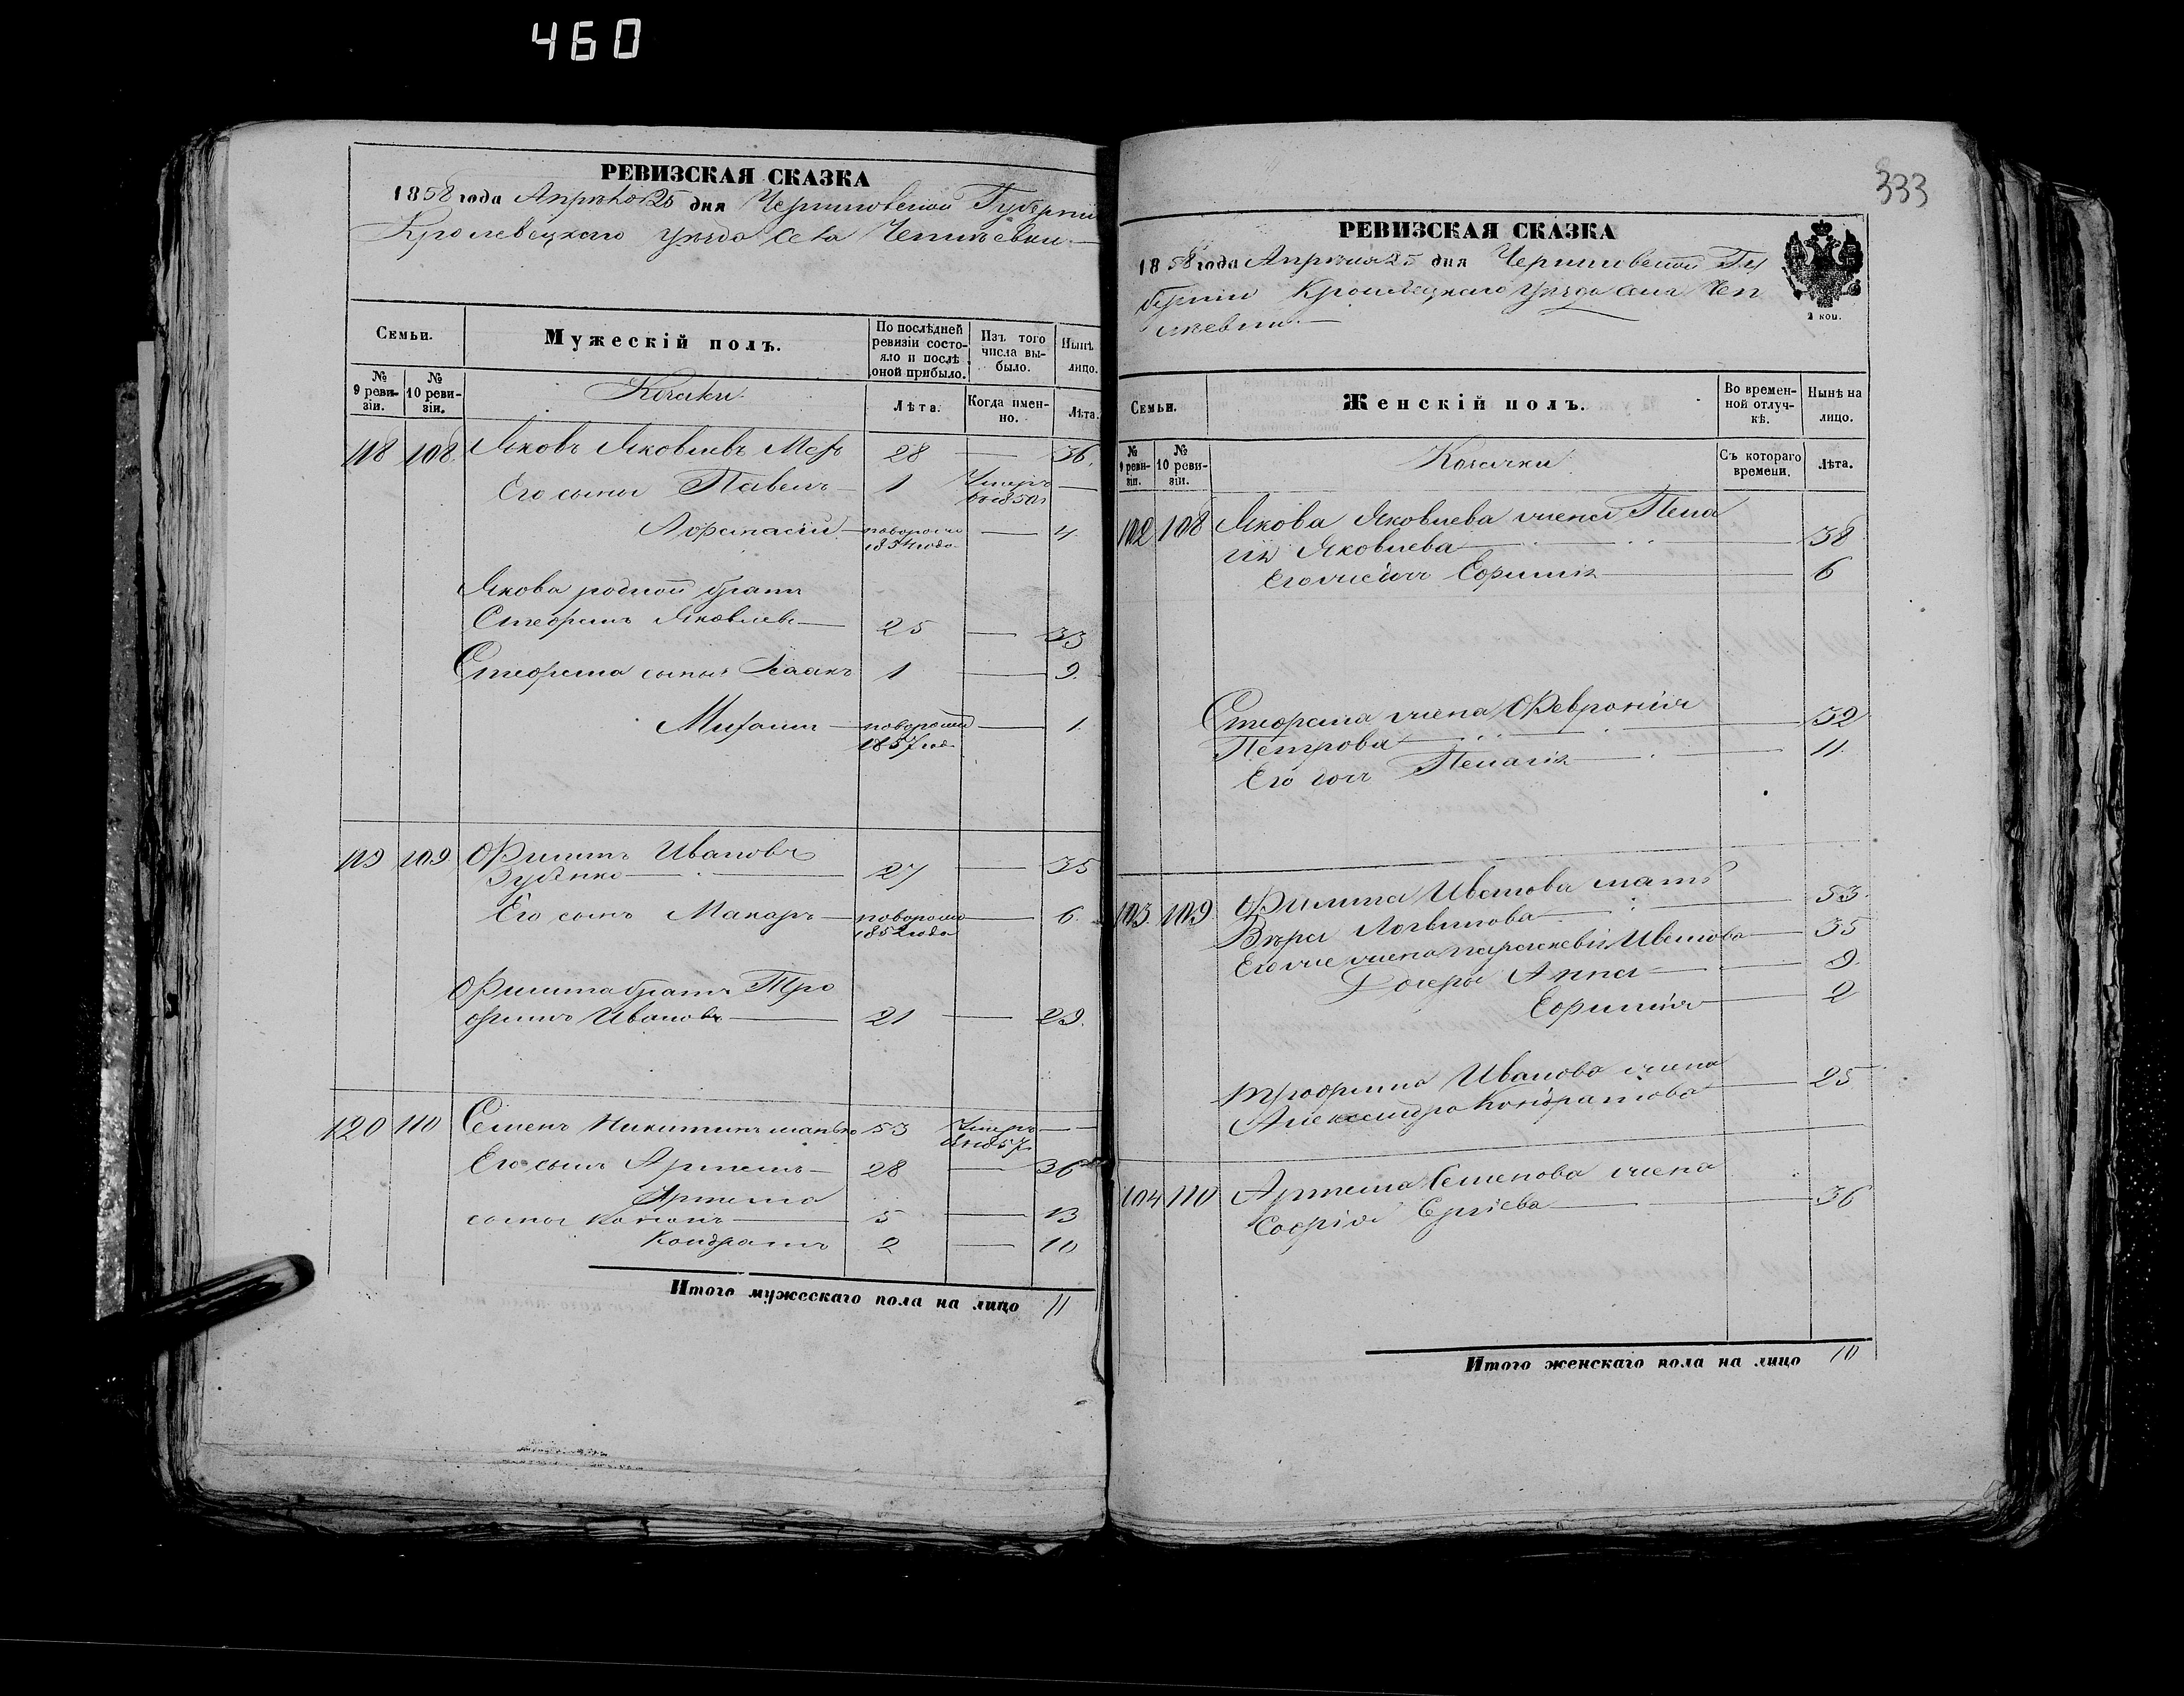 460
РЕВИЗСКАЯ СКАЗКА
1858 года Апрѣля 25 дня Черниговской Губерніи
Кролевецкаго уѣзда села Чепліевки
Семьи.
Мужескій полъ.
По послѣдней ревизіи состояло и послѣ оной прибыло.
Изъ того числа выбыло.
Нынѣ лицо.
№ 9 ревизіи.
№ 10 ревизіи.
Козаки.
Лѣта.
Когда именно.
Лѣта.
118 108 Яковъ Яковлевъ 28 — 36
Его сыны Павелъ 1 Умеръ въ 1850 г —
Афонасій новорожд 1854 года — 4
Якова родной братъ
Стефанъ Яковлевъ 25 — 33
Стефана сыны Исаакъ 1 — 9
Михаилъ новорожд 1857 год — 1
119 109 Филиппъ Ивановъ
Зубенко 27 — 35
Его сынъ Макаръ новорожд 1852 года — 6
Филиппа братъ Тро
фимъ Ивановъ 21 — 29
120 110 Семенъ Никитинъ 53 Умеръ 1857 —
Его сынъ Артемъ 28 — 36
Артема
сыны Кононъ 5 — 13
Кондратъ 2 — 10
Итого мужескаго пола на лицо 11
333
РЕВИЗСКАЯ СКАЗКА
1858 года Апрѣля 25 дня Черниговской Гу
берніи Кролевецкаго уѣзда села Чеп
ліевки
2 коп.
Семьи.
Женскій полъ.
Во временной отлучкѣ.
Нынѣ на лицо.
№ 9 ревизіи.
№ 10 ревизіи.
Козачки
Съ котораго времени.
Лѣта.
102 108 Якова Яковлева жена Пела
гія Яковлева 38
Его же дочь Ефимія 6
Стефана жена Февронія
Петрова 32
Его дочь Пелагія 11
103 109 Филиппа Иванова мать
Вѣра Логвинова 53
Его же жена Параскевія Иванова 35
Дочери Анна 9
Ефимія 2
Трофима Иванова жена
Александра Кондратова 25
104 110 Артема Семенова жена
Софія Ергіева 36
Итого женскаго пола на лицо 10